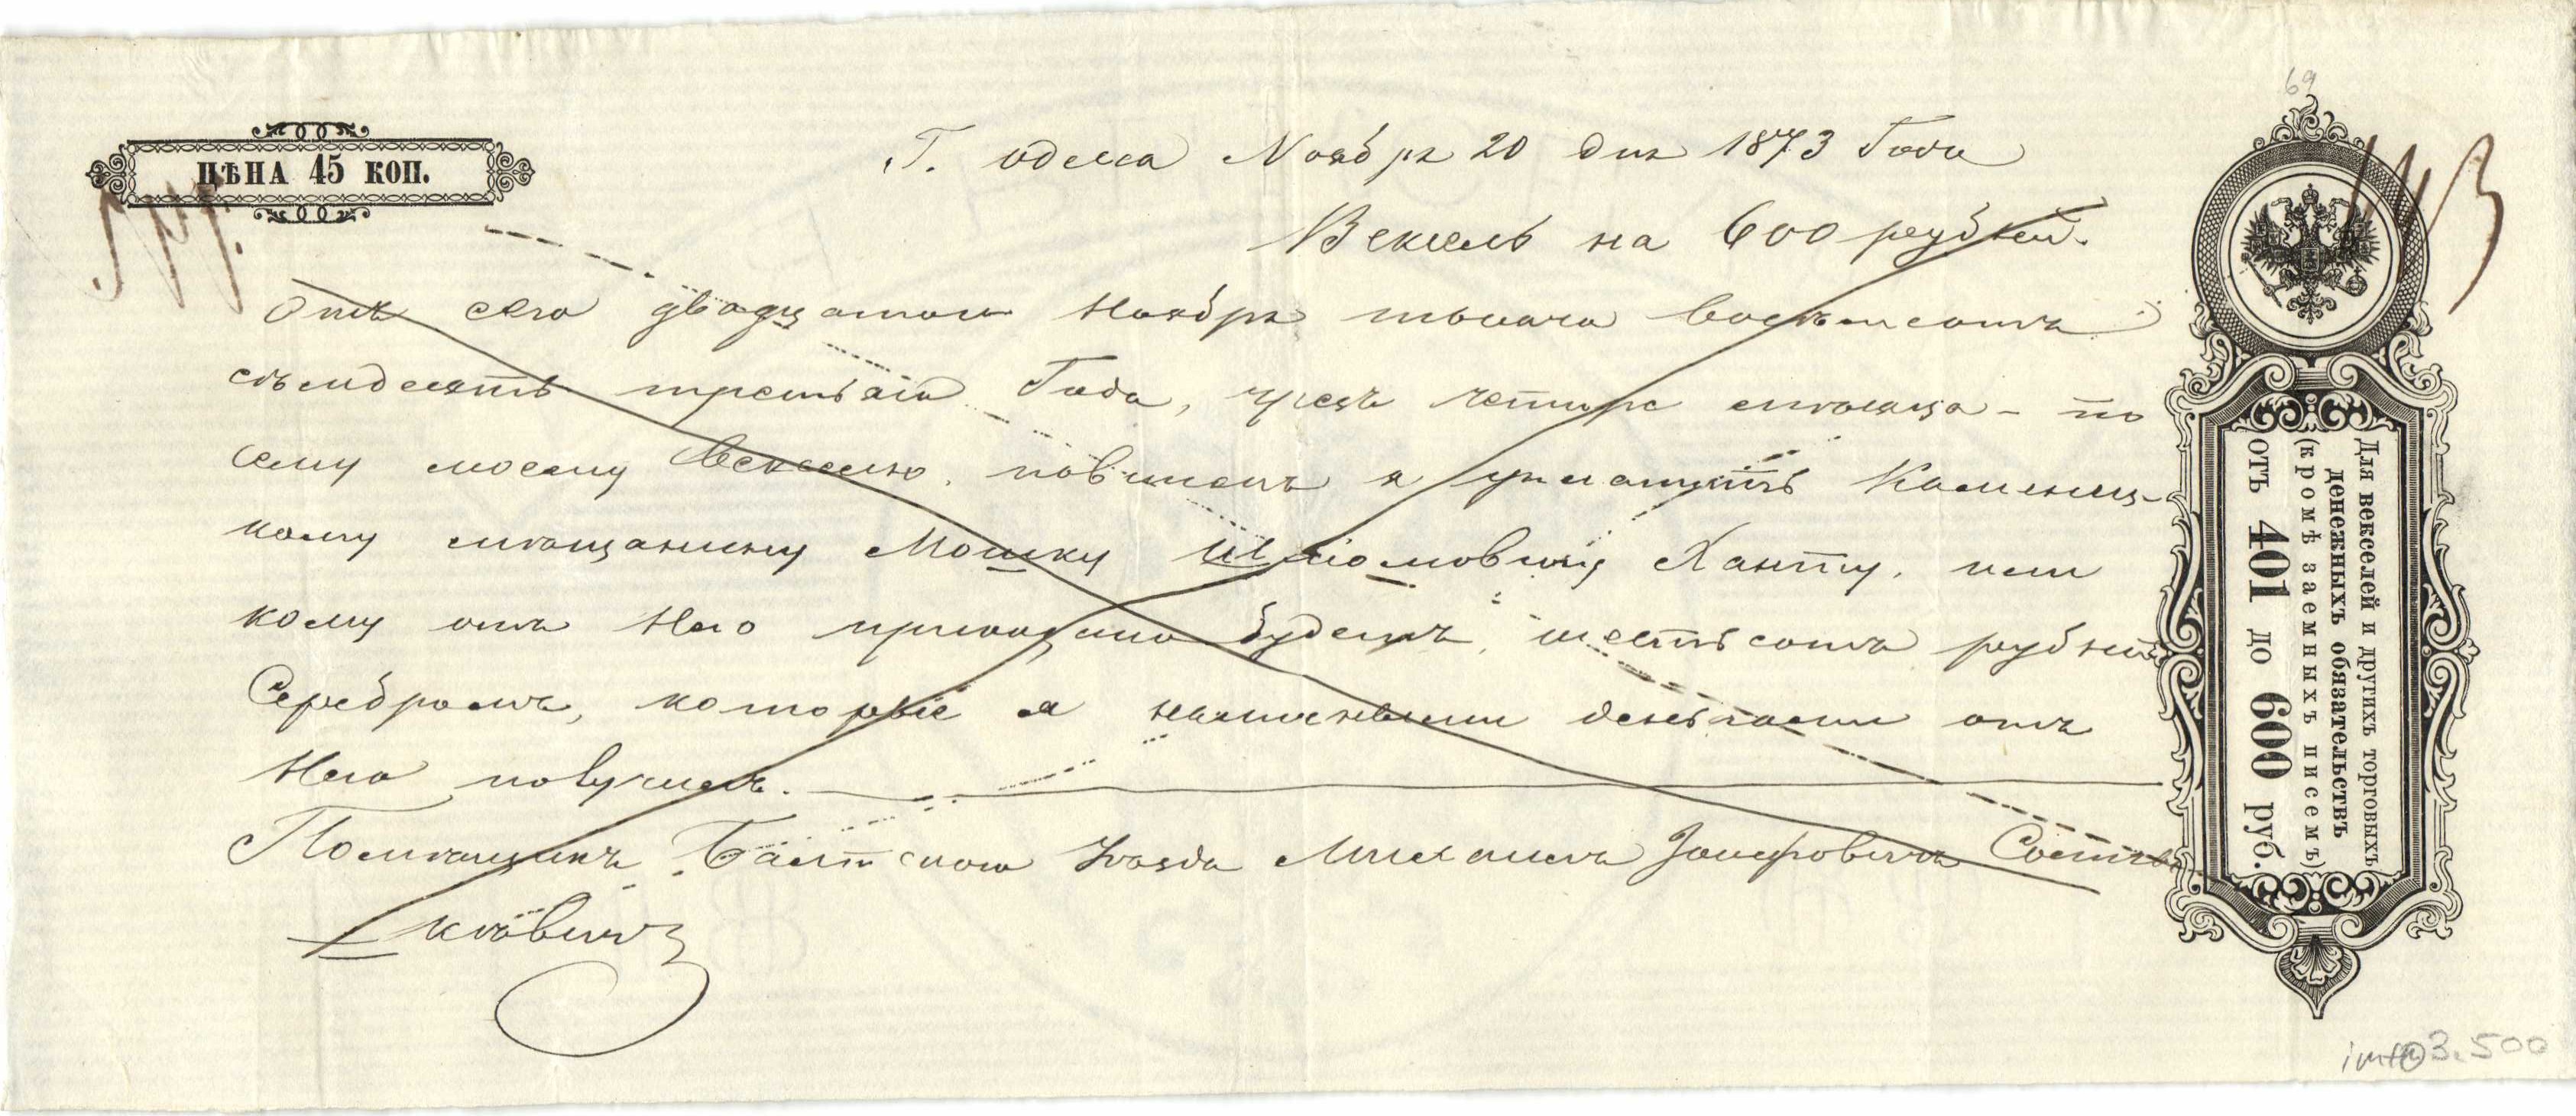 ЦѢНА 45 КОП.
Г. Одесса Ноября 20 дня 1873 Года
Вексель на 600 рублей.
Отъ сего двадцатого Ноября тысяча восемьсотъ
семьдесятъ третьяго Года, чрезъ четыре мѣсяца - по
сему моему Векселю, повиненъ я уплатить Каменец-
кому мѣщанину Мошку Шліомовичу Ханту, или
кому отъ Него приказано будетъ, шестьсотъ рублей
Серебромъ, которые я наличными деньгами отъ
Него получилъ.
Помѣщикъ Балтского Уѣзда Михаилъ
кѣвичъ
69
Для векселей и другихъ торговыхъ
денежныхъ обязательствъ
(кромѣ заемныхъ писемъ)
отъ 401 до 600 руб.
3.500